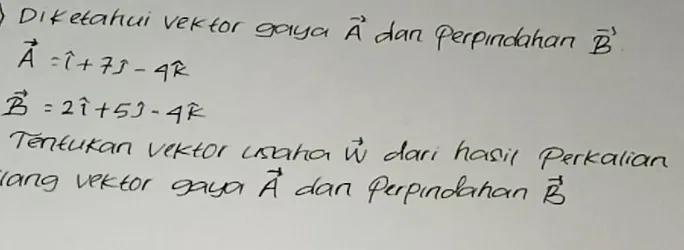 ) Diketahui vektor gaya A⃗ dan Perpindahan B⃗
A⃗ = î + 7ĵ - 4k̂
B⃗ = 2î + 5ĵ - 4k̂
Tentukan vektor usaha w⃗ dari hasil Perkalian
ilang vektor gaya A⃗ dan Perpindahan B⃗